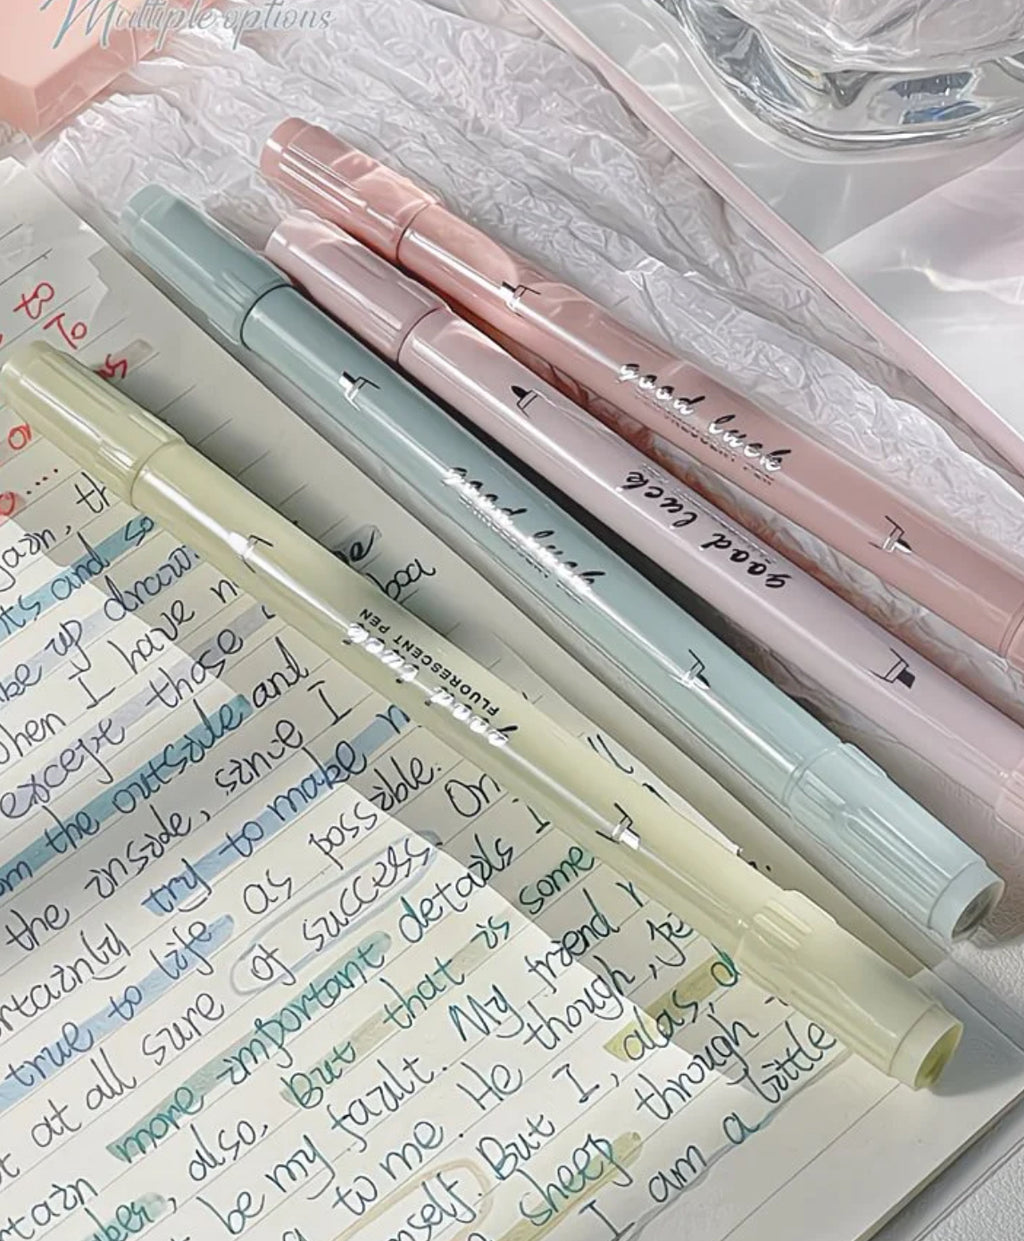 Multiple options
good luck
good luck
good luck
good luck
FLUORESCENT PEN
again, th
ts and so
be up drawin
when I have n
except those
om the outside and
the inside, since I
ertainly try to make
true to life as possible. On
ot at all sure of success.
more important details I
also, But that is some
be my fault. My friend
to me. He though, Je
mself. But I, alas, d
sheep through
I am a little
rtain
ber,